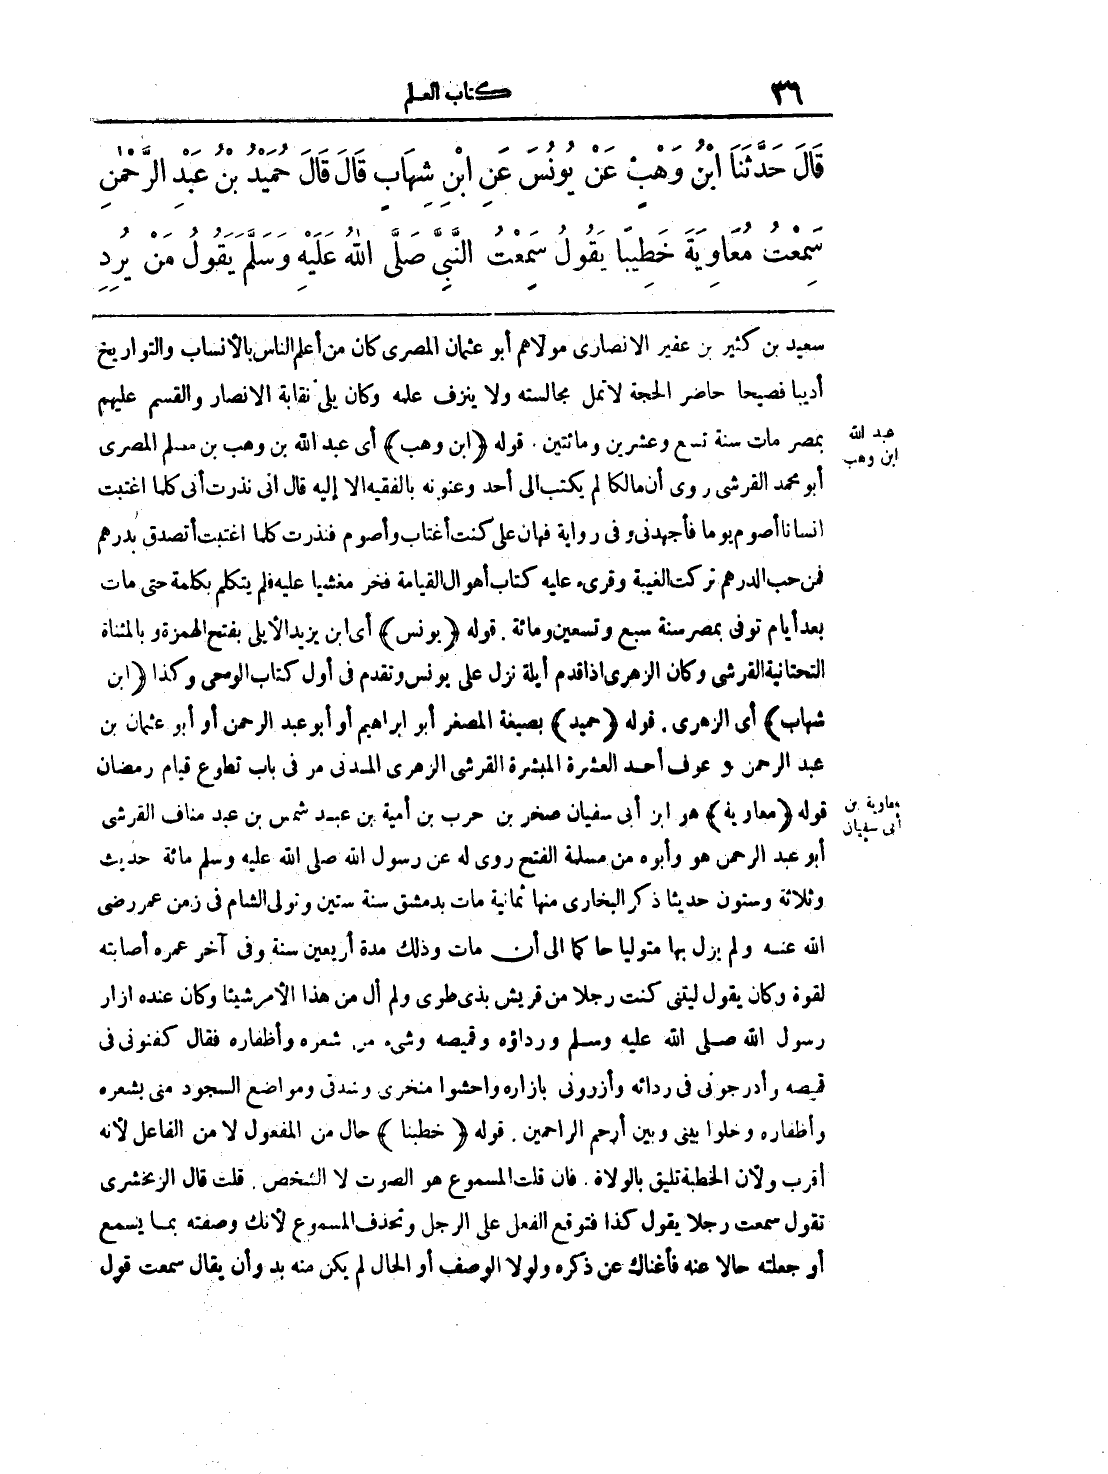 ٣٦
كتاب العلم
قَالَ حَدَّثَنَا ابْنُ وَهْبٍ عَنْ يُونُسَ عَنِ ابْنِ شِهَابٍ قَالَ قَالَ حُمَيْدُ بْنُ عَبْدِ الرَّحْمٰنِ
سَمِعْتُ مُعَاوِيَةَ خَطِيبًا يَقُولُ سَمِعْتُ النَّبِيَّ صَلَّى اللهُ عَلَيْهِ وَسَلَّمَ يَقُولُ مَنْ يُرِدِ
سعيد بن كثير بن عفير الانصارى مولاهم أبو عثمان المصرى كان من أعلم الناس بالأنساب والتواريخ
أديبا فصيحا حاضر الحجة لا تمل مجالسته ولا ينزف علمه وكان يلى نقابة الانصار والقسم عليهم
بمصر مات سنة تسع وعشرين ومائتين. قوله ﴿ابن وهب﴾ أى عبد الله بن وهب بن مسلم المصرى
عبد الله
ابن وهب
أبو محمد القرشى روى أن مالكا لم يكتب الى أحد وعنونه بالفقيه الا إليه قال انى نذرت أنى كلما اغتبت
انسانا أصوم يوما فأجهدنى و فى رواية فهان على كنت أغتاب وأصوم فنذرت كلما اغتبت أتصدق بدرهم
فمن حب الدرهم تركت الغيبة وقرىء عليه كتاب أهوال القيامة فخر مغشيا عليه فلم يتكلم بكلمة حتى مات
بعد أيام توفى بمصر سنة سبع وتسعين ومائة. قوله ﴿يونس﴾ أى ابن يزيد الأيلى بفتح الهمزة و بالمثناة
التحتانية القرشى وكان الزهرى اذا قدم أيلة نزل على يونس وتقدم فى أول كتاب الوحى وكذا ﴿ابن
شهاب﴾ أى الزهرى. قوله ﴿حميد﴾ بصيغة المصغر أبو ابراهيم أو أبو عبد الرحمن أو أبو عثمان بن
عبد الرحمن و عوف أحد العشرة المبشرة القرشى الزهرى المدنى مر فى باب تطوع قيام رمضان
قوله ﴿معاوية﴾ هو ابن أبى سفيان صخر بن حرب بن أمية بن عبد شمس بن عبد مناف القرشى
معاوية بن
أبى سفيان
أبو عبد الرحمن هو وأبوه من مسلمة الفتح روى له عن رسول الله صلى الله عليه وسلم مائة حديث
وثلاثة وستون حديثا ذكر البخارى منها ثمانية مات بدمشق سنة ستين وتولى الشام فى زمن عمر رضى
الله عنه ولم يزل بها متوليا حاكما الى أن مات وذلك مدة أربعين سنة وفى آخر عمره أصابته
لقوة وكان يقول ليتنى كنت رجلا من قريش بذى طوى ولم أل من هذا الأمر شيئا وكان عنده ازار
رسول الله صلى الله عليه وسلم ورداؤه وقميصه وشىء من شعره وأظفاره فقال كفنونى فى
قميصه وأدرجونى فى ردائه وأزرونى بازاره واحشوا منخرى وشدقى ومواضع السجود منى بشعره
وأظفاره وخلوا بينى وبين أرحم الراحمين. قوله ﴿خطيبا﴾ حال من المفعول لا من الفاعل لأنه
أقرب ولأن الخطبة تليق بالولاة. فان قلت المسموع هو الصوت لا الشخص. قلت قال الزمخشرى
تقول سمعت رجلا يقول كذا فتوقع الفعل على الرجل وتحذف المسموع لأنك وصفته بما يسمع
أو جعلته حالا عنه فأغناك عن ذكره ولولا الوصف أو الحال لم يكن منه بد وأن يقال سمعت قول